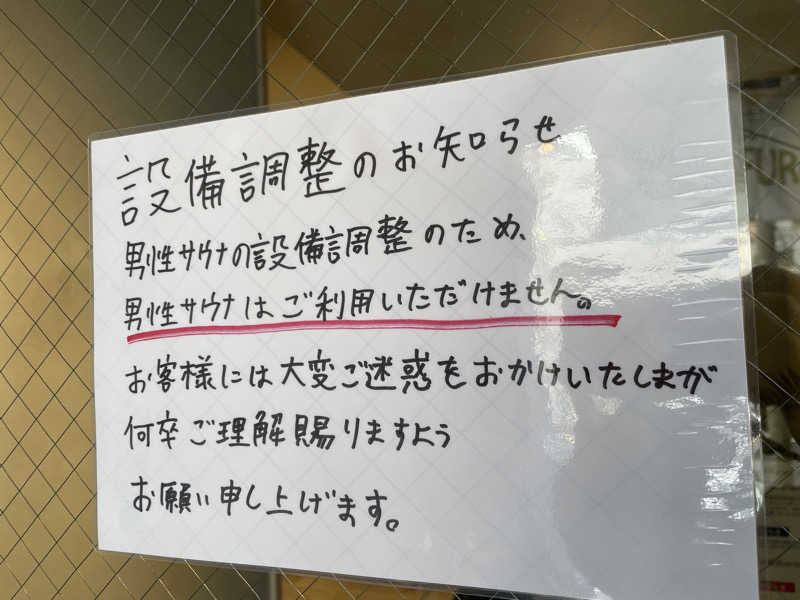 設備調整のお知らせ
男性サウナの設備調整のため、
男性サウナはご利用いただけません。
お客様には大変ご迷惑をおかけいたしまが
何卒ご理解賜りますよう
お願い申し上げます。